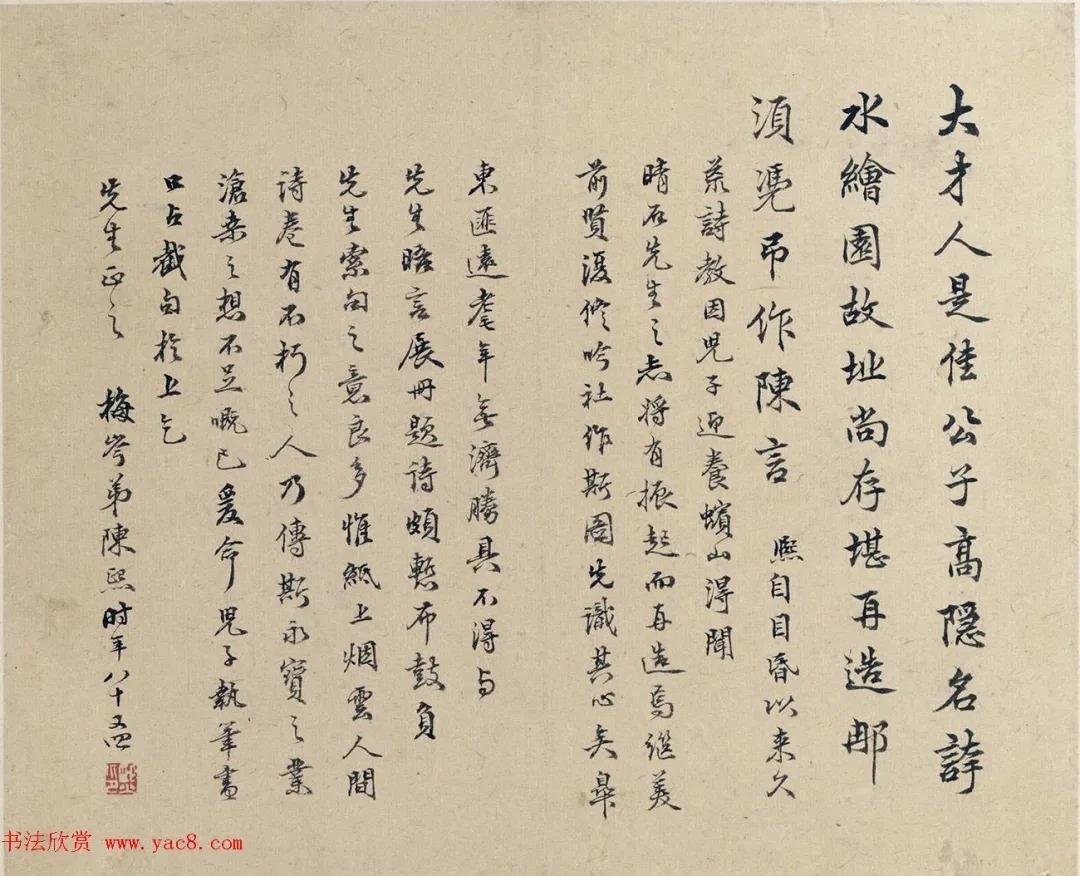 大才人是佳公子高隱名誇
水繪園故址尚存堪再造那
須憑弔作陳言 熙自目昏以来久
荒詩教因児子迎養蠙山得聞
晴石先生之志將有振起而再造焉繼美
前賢復修吟社作斯圖先識其心矣皋
東匪遠耄年無濟勝具不得与
先生晤言展冊題詩頗慙布鼓負
先生索句之意良多惟紙上烟雲人間
詩卷有不朽之人乃傳斯永寶之業
滄桑之想不足嘅已爰命児子執筆畫
口占截句於上乞
先生正之 梅岑弟陳熙时年八十又四
书法欣赏 www.yac8.com